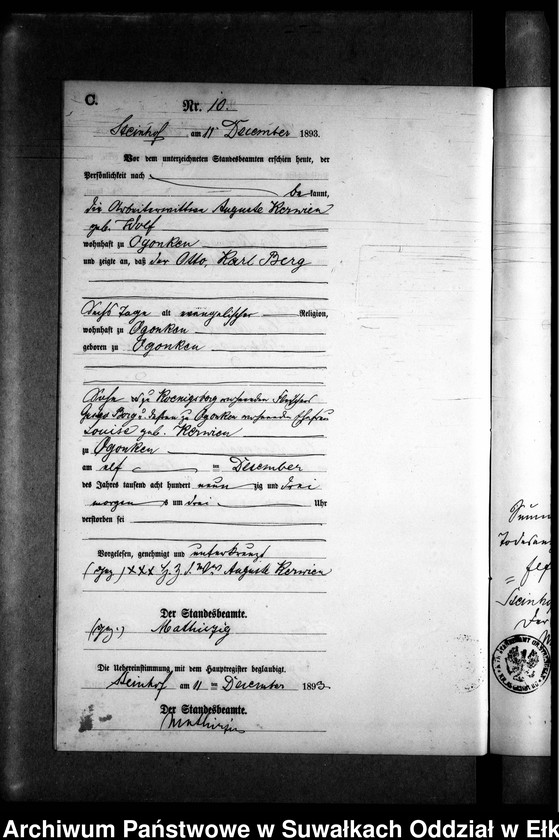 C.
Nr. 10.
Steinhof am 11 December 1893.
Vor dem unterzeichneten Standesbeamten erschien heute, der
Persönlichkeit nach
be kannt,
die Arbeiterwittwe Auguste Kerwien
geb. Wolf
wohnhaft zu Ogonken
und zeigte an, daß der Otto, Karl Berg
Sechs Tage alt evangelischer Religion,
wohnhaft zu Ogonken
geboren zu Ogonken
Sohn zu Koenigsberg wohnenden
Berg u. dessen zu Ogonken wohnenden Ehefrau
Louise geb. Kerwien
zu Ogonken
am elf ten December
des Jahres tausend acht hundert neun zig und drei
morgens um drei Uhr
verstorben sei
Vorgelesen, genehmigt und unterkreuzt
(gez) XXX Auguste Kerwien
Der Standesbeamte.
(gez.) Mathiszig
Die Uebereinstimmung mit dem Hauptregister beglaubigt.
Steinhof am 11 ten December 1893
Der Standesbeamte.
Mathiszig
Steinho
Der
Archiwum Państwowe w Suwałkach Oddział w Ełk